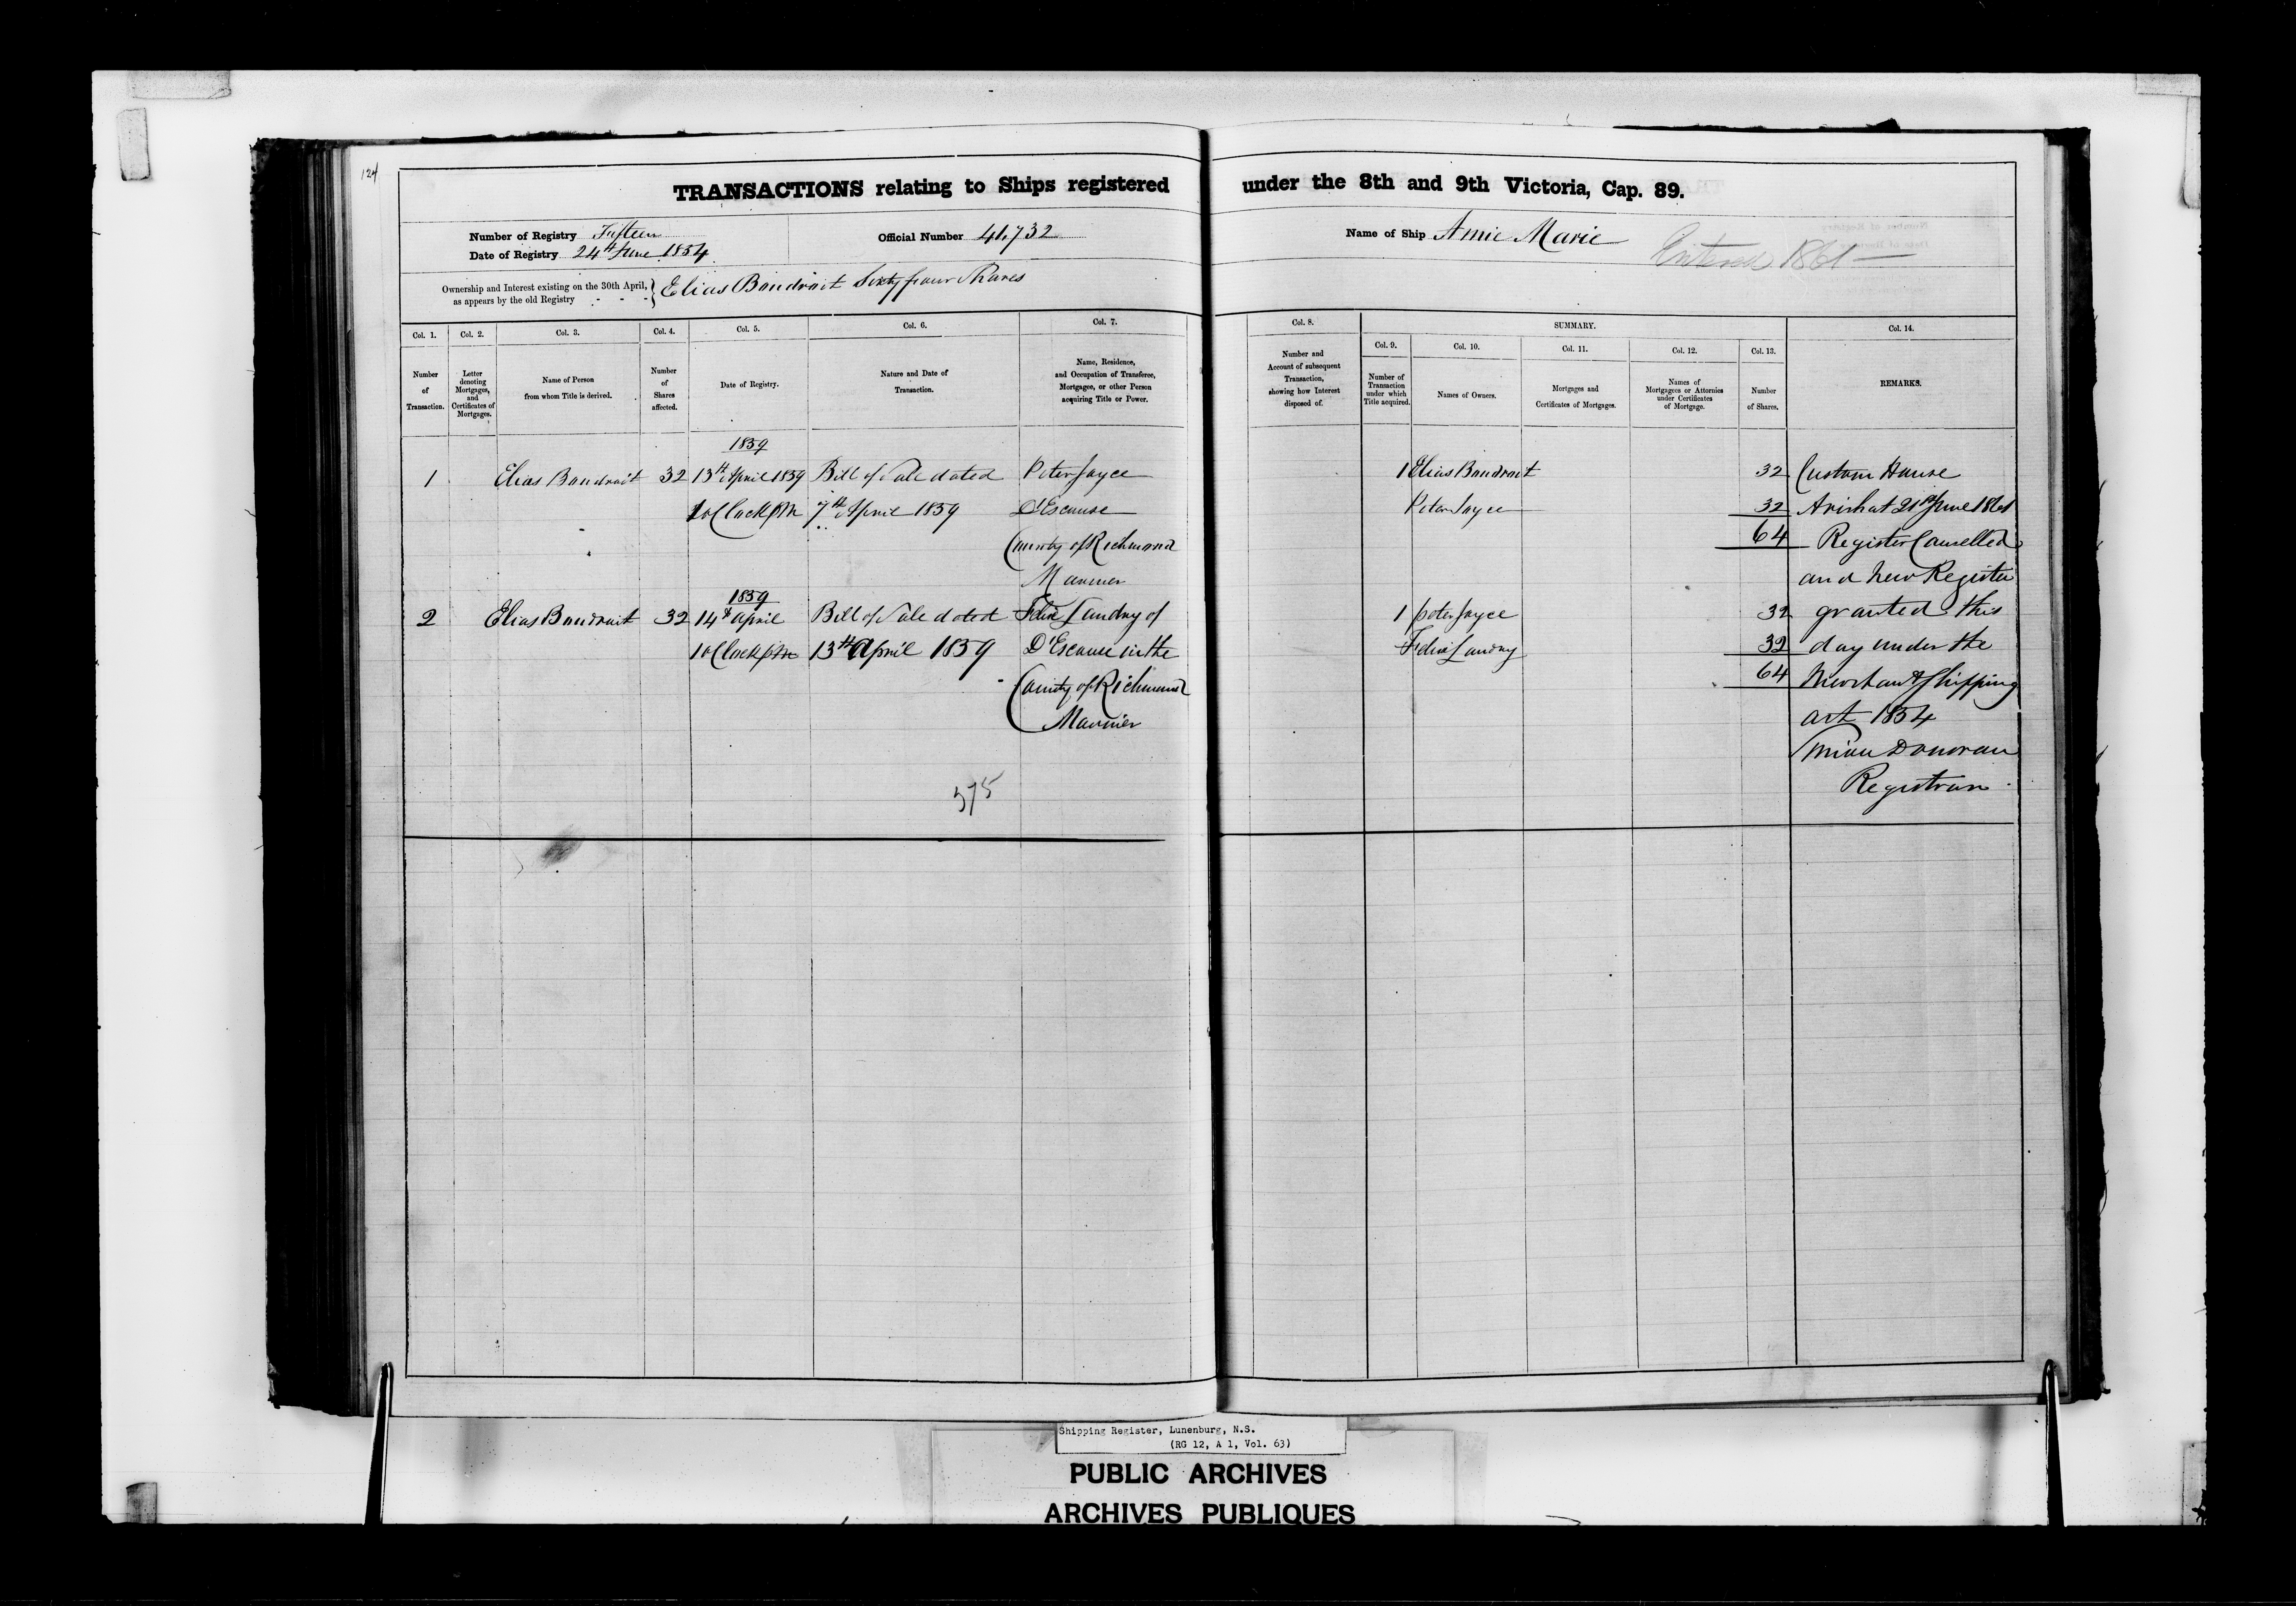 124
TRANSACTIONS relating to Ships registered under the 8th and 9th Victoria, Cap. 89.
Number of Registry Fifteen
Date of Registry 24th June 1854
Official Number 41,732
Name of Ship Amie Marie
Entered 1861
Ownership and Interest existing on the 30th April,
as appears by the old Registry - - - } Elias Boudroit Sixty four Shares
Col. 1. Col. 2. Col. 3. Col. 4. Col. 5. Col. 6. Col. 7. Col. 8. SUMMARY. Col. 14.
Col. 9. Col. 10. Col. 11. Col. 12. Col. 13.
Number
of
Transaction.
Letter
denoting
Mortgages,
and
Certificates of
Mortgages.
Name of Person
from whom Title is derived.
Number
of
Shares
affected.
Date of Registry.
Nature and Date of
Transaction.
Name, Residence,
and Occupation of Transferee,
Mortgagee, or other Person
acquiring Title or Power.
Number and
Account of subsequent
Transaction,
shewing how Interest
disposed of.
Number of
Transaction
under which
Title acquired.
Names of Owners.
Mortgages and
Certificates of Mortgages.
Names of
Mortgagees or Attornies
under Certificates
of Mortgage.
Number
of Shares.
REMARKS.
1859
1 Elias Boudroit 32 13th April 1859 Bill of Sale dated Peter Joyce
1 oClock PM 7th April 1859 D'Escouse
County of Richmond
Mariner
1859
2 Elias Boudroit 32 14th April Bill of Sale dated Felix Landry of
1 oClock pm 13th April 1859 D'Escouse in the
County of Richmond
Mariner
375
1 Elias Boudroit 32
Peter Joyce 32
64
1 Peter Joyce 32
Felix Landry 32
64
Custom House
Arichat 21st June 1861
Register Cancelled
and New Register
granted this
day under the
Merchant Shipping
act 1854
Donovan
Registrar
Shipping Register, Lunenburg, N.S.
(RG 12, A 1, Vol. 63)
PUBLIC ARCHIVES
ARCHIVES PUBLIQUES